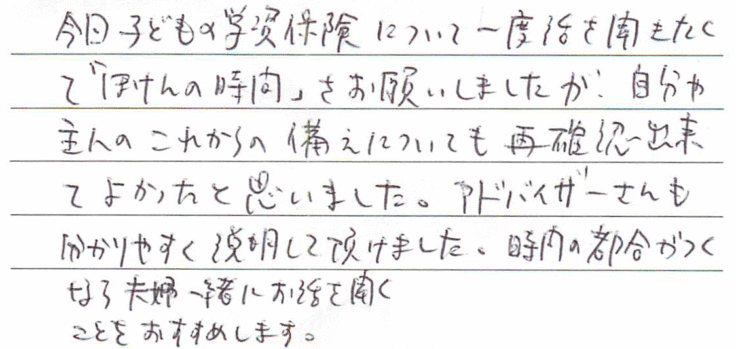 今日子どもの学資保険について一度話を聞きたく
て「ほけんの時間」をお願いしましたが、自分や
主人のこれからの備えについても再確認出来
てよかったと思いました。アドバイザーさんも
分かりやすく説明して頂けました。時間の都合がつく
なら夫婦一緒にお話を聞く
ことをおすすめします。